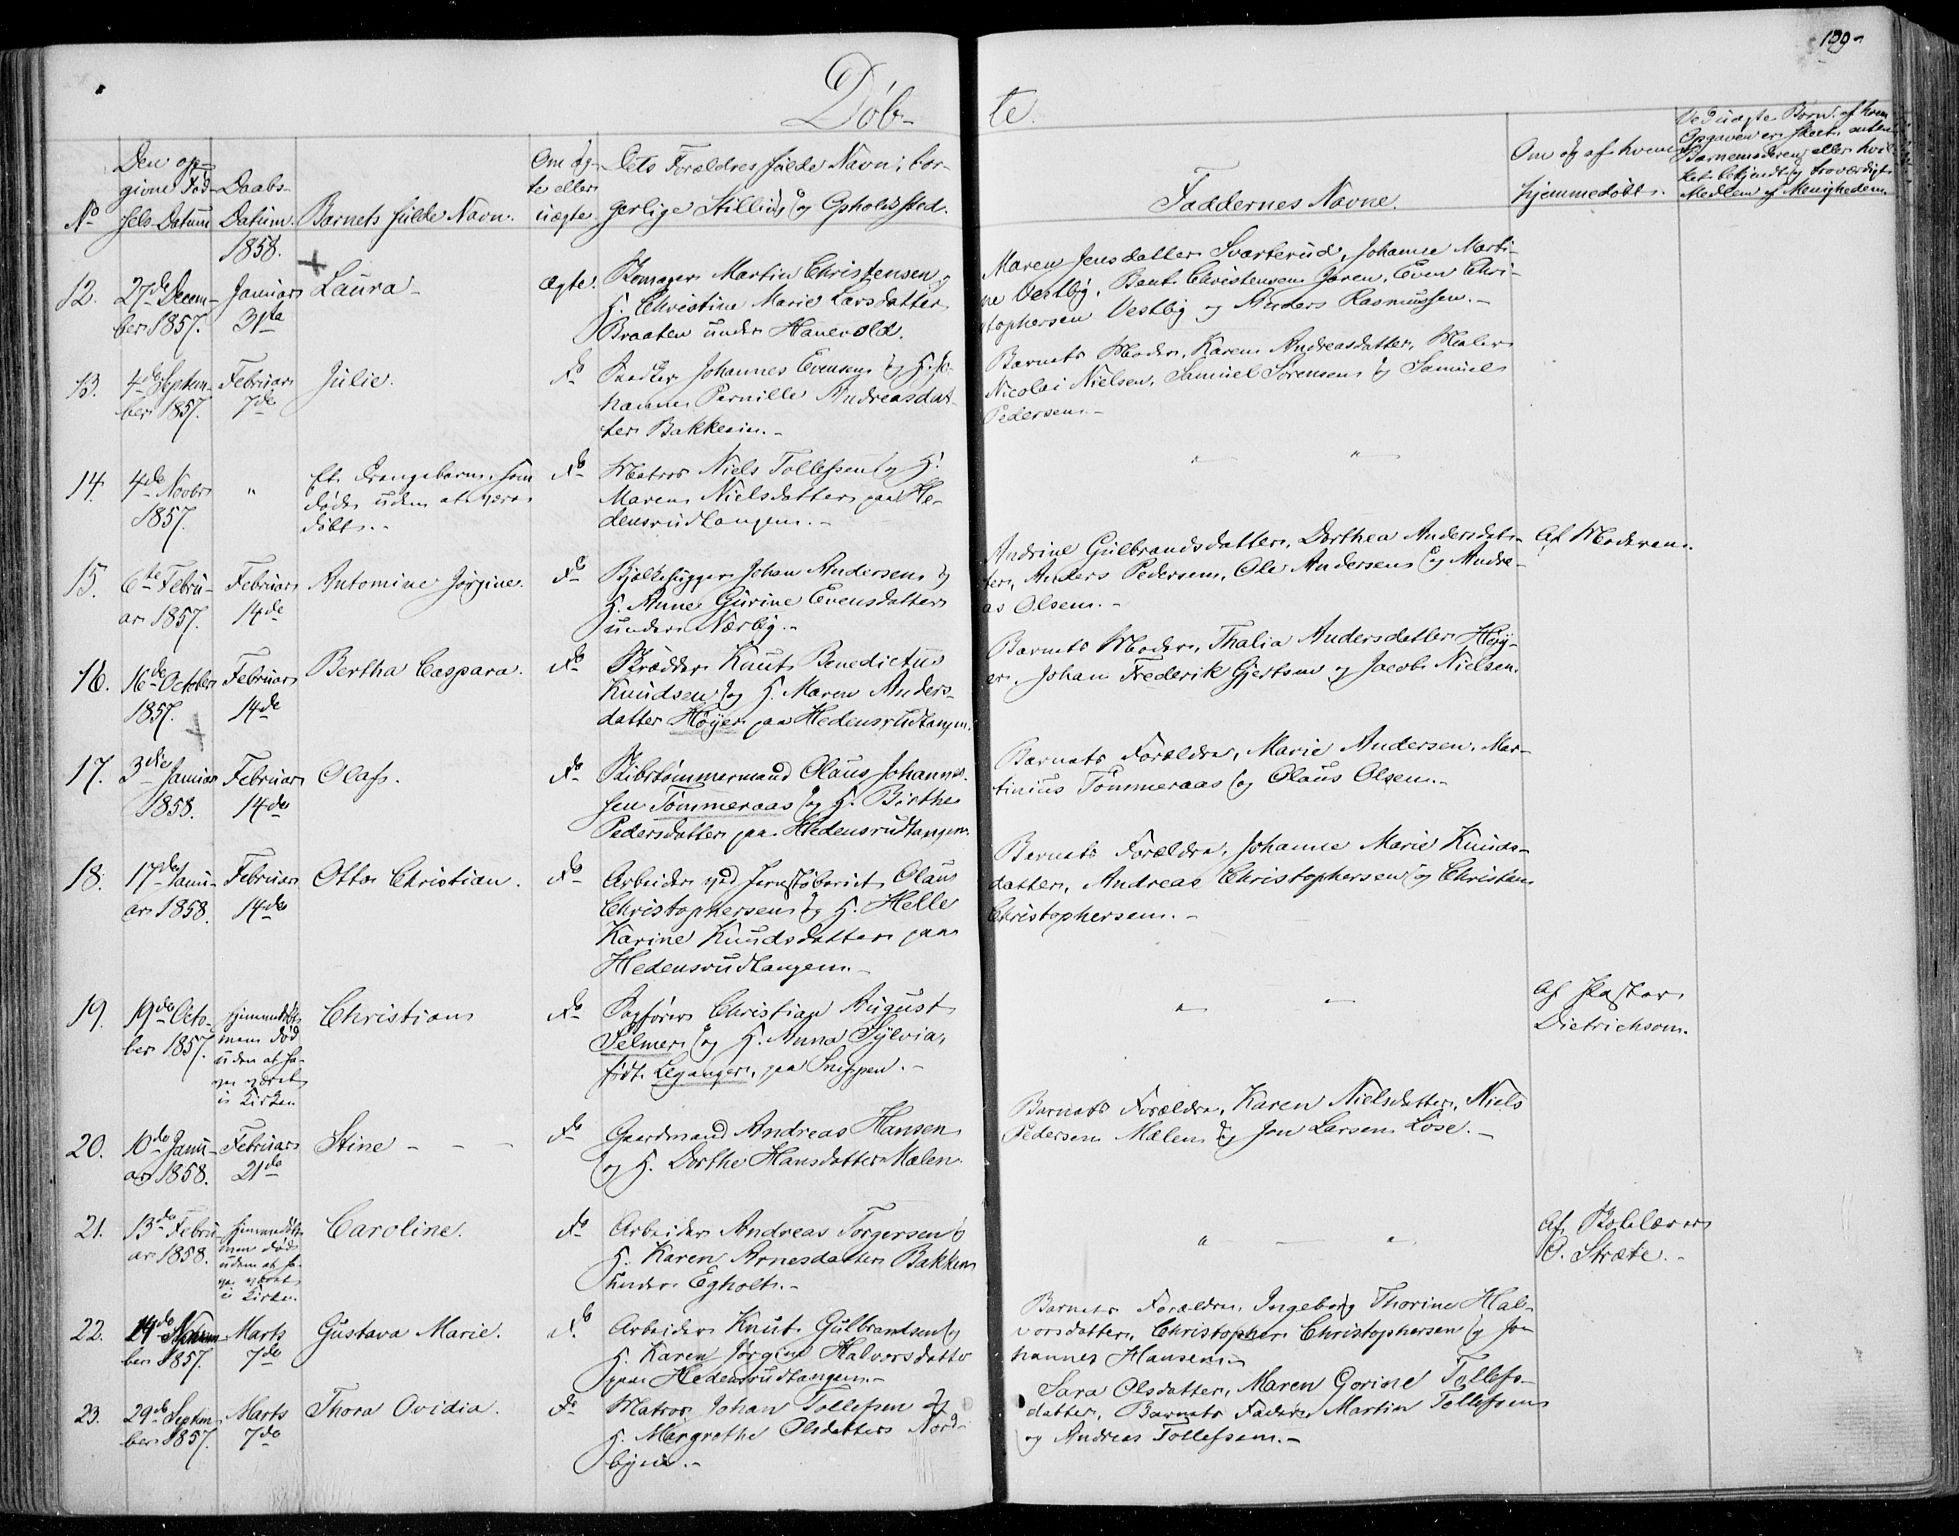 109
Døb-
te.
Den op-
givne Fød-
sels-Datum
Daabs-
Datum.
1858.
No
Barnets fulde Navn.
Om æg-
te eller
uægte.
Dets Forældres fulde Navn, bor-
gerlige Stilling og Opholdssted.
Faddernes Navne.
Om og af hvem
hjemmedøbt.
Ved uægte Børn: af hvem
Opgaven er skeet, enten
Barnemoderen eller hvil-
ket bekjendt og troværdigt
Medlem af Menigheden.
12. 27de Decem-
ber 1857.
Januar
31te
Laura
Ægte.
Martin Christensen og
H. Christine Marie Larsdatter
Braaten under Hanevold.
Maren Jensdatter Svarterud, Johanne Marti-
ne Vestby, Bent Christensen Jaren, Even Chri-
stophersen Vestby og Anders Rasmussen.
13. 4de Septem-
ber 1857.
Februar
7de
Julie.
do
Johannes Evensen og H. Jo-
hanne Pernille Andreasdat-
ter Bakkeein.
Barnets Moder, Karen Andreasdatter, Maler
Nicolai Nielsen, Samuel Sørensen og Samuel
Pedersen.
14. 4de Novbr
1857.
"
Et Drengebarn, som
døde uden at være
døbt.
do
Matros Niels Tollefsen og H.
Maren Nielsdatter paa He-
densrudtangen.
" "
15. 6te Febru-
ar 1857.
Februar
14de
Antomine Jørgine.
do
Bjelkehugger Johan Andersen og
H. Anne Gurine Evensdatter
under Nærby.
Andrine Gulbrandsdatter, Dorthea Andersdat-
ter, Anders Pedersen, Ole Andersen og Andre-
as Olsen.
Af Moderen.
16. 16de October
1857.
Februar
14de
Bertha Caspara.
do
Skrædder Knut Benedictus
Knudsen og H. Maren Anders-
datter Høyer paa Hedensrudtangen.
Barnets Moder, Thalia Andersdatter Høy-
er, Johan Frederik Gjertsen og Jacob Nielsen.
17. 3die Januar
1858.
Februar
14de
Olaf.
do
Skibstømmermand Olaus Johannes-
sen Tømmeraas og H. Birthe
Pedersdatter paa Hedensrudtangen.
Barnets Forældre, Marie Andersen, Mar-
tinius Tømmeraas og Olaus Olsen.
18. 17de Janu-
ar 1858.
Februar
14de
Otto Christian.
do
Arbeider ved Jernstøberiet Olaus
Christophersen og H. Helle
Karine Knudsdatter paa
Hedensrudtangen.
Barnets Forældre, Johanne Marie Knuds-
datter, Andreas Christophersen og Christian
Christophersen.
19. 19de Octo-
ber 1857.
hjemmedøbt
men død
uden at ha-
ve været
i Kirken
Christian
do
Sagfører Christian August
Selmer og H. Anna Sylvia,
født Leganger, paa Snippen.
" "
Af Pastor
Dietrichson.
20. 10de Janu-
ar 1858.
Februar
21de
Stine
do
Gaardmand Andreas Hansen
og H. Dorthe Hansdatter Mælen.
Barnets Forældre, Karen Nielsdatter, Niels
Pedersen Mælen og Jon Larsen Løse.
21. 13de Febru-
ar 1858.
hjemmedøbt
men død
uden at ha-
ve været
i Kirken.
Caroline.
do
Arbeider Andreas Torgersen og
H. Karen Arnesdatter Bakken
under Egholt.
" "
Af Skolelærer
O. Stræte.
22. Novem-
ber 1857.
Marts
7de
Gustava Marie.
do
Arbeider Knut Gulbrandsen og
H. Karen Jørgine Halvorsdatter
paa Hedensrudtangen.
Barnets Forældre, Ingeborg Thorine Hal-
vorsdatter, Christopher Christophersen og Jo-
hannes Hansen.
23. 29de Septem-
ber 1857.
Marts
7de
Thora Ovidia.
do
Matros Johan Tollefsen og
H. Margrethe Olsdatter Nord-
byeie.
Sara Olsdatter, Maren Gorine Tollefs-
datter, Barnets Fader, Martin Tollefsen
og Andreas Tollefsen.